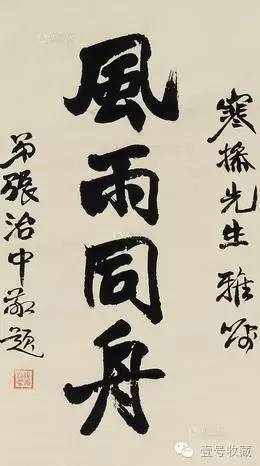 寒操先生雅嘱
風雨同舟
弟張治中敬題
壹号收藏